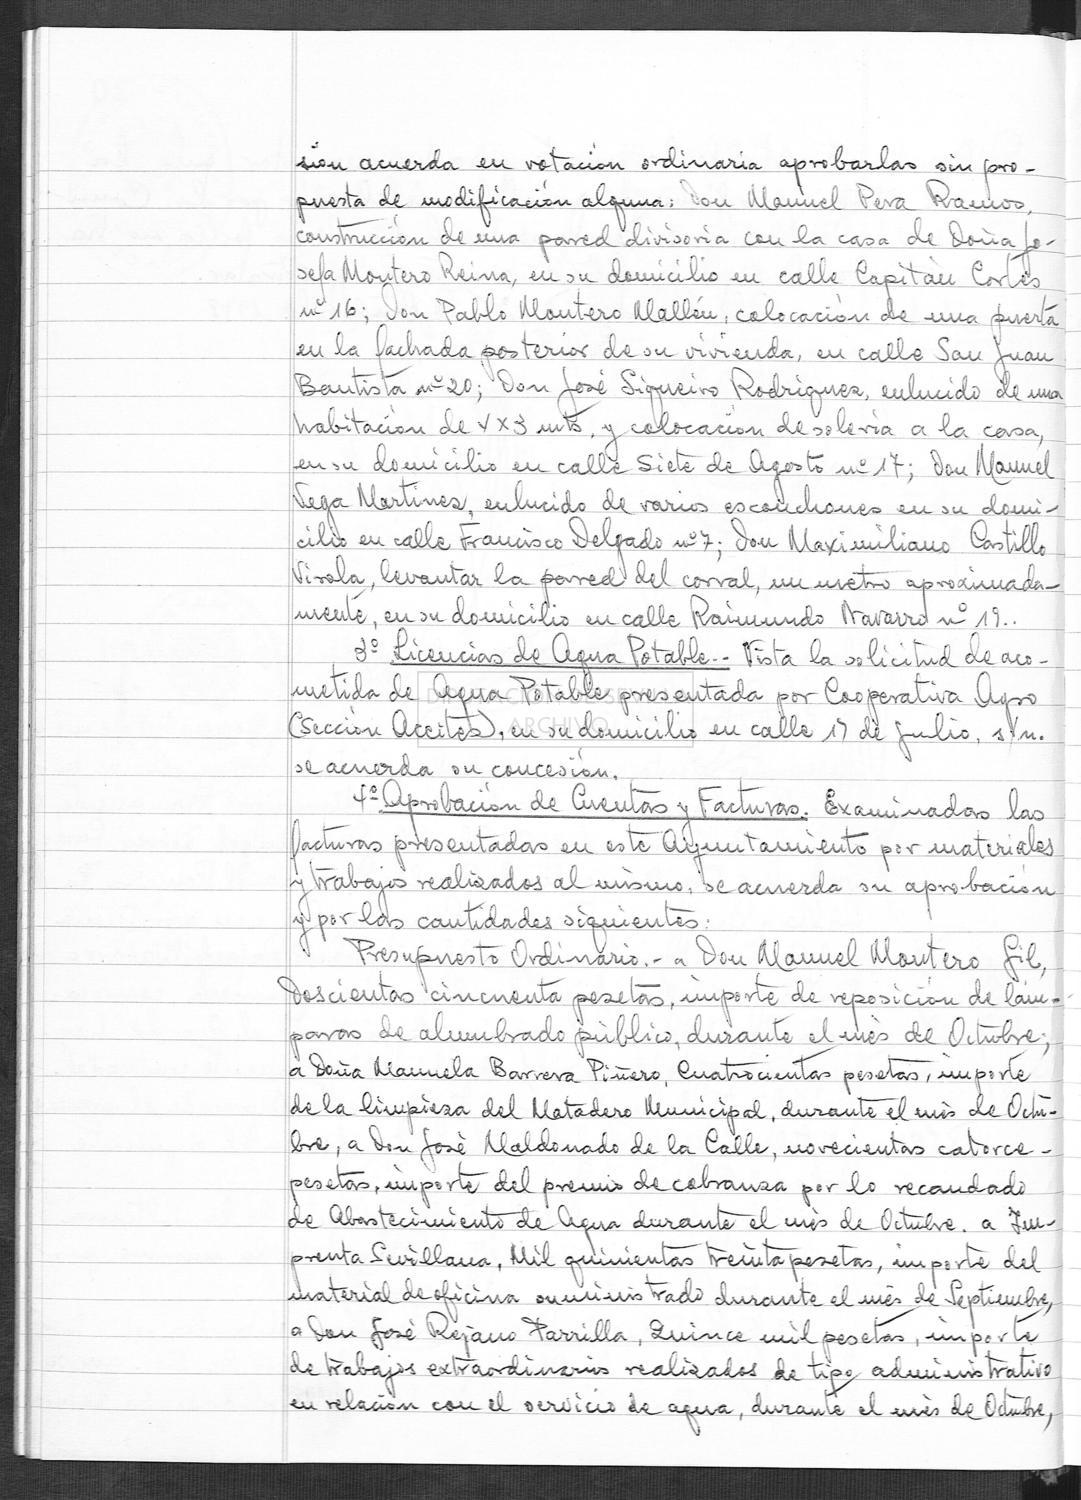 sión acuerda en votación ordinaria aprobarlas sin pro-
puesta de modificación alguna: Don Manuel Pera Ramos,
construcción de una pared divisoria con la casa de Doña Jo-
sefa Montero Reina, en su domicilio en calle Capitán Cortés
nº 16; Don Pablo Montero Mallén, colocación de una puerta
en la fachada posterior de su vivienda, en calle San Juan
Bautista nº 20; Don José Sigueiro Rodríguez, enlucido de una
habitación de 4x3 mts, y colocación de solería a la casa,
en su domicilio en calle Siete de Agosto nº 17; Don Manuel
Vega Martínez, enlucido de varios esconchones en su domi-
cilio en calle Francisco Delgado nº 7; Don Maximiliano Castillo
Virola, levantar la pared del corral, un metro aproximada-
mente, en su domicilio en calle Raimundo Navarro nº 19..
3º Licencias de Agua Potable.- Vista la solicitud de aco-
metida de Agua Potable presentada por Cooperativa Agro
(Sección Aceites), en su domicilio en calle 17 de Julio, s/n.
se acuerda su concesión.
4º Aprobación de Cuentas y Facturas. Examinadas las
facturas presentadas en este Ayuntamiento por materiales
y trabajos realizados al mismo, se acuerda su aprobación
y por las cantidades siguientes:
Presupuesto Ordinario.- a Don Manuel Montero Gil,
Doscientas cincuenta pesetas, importe de reposición de lám-
paras de alumbrado público, durante el mes de Octubre;
a Doña Manuela Barrera Piñero, Cuatrocientas pesetas, importe
de la limpieza del Matadero Municipal, durante el mes de Octu-
bre, a Don José Maldonado de la Calle, novecientas catorce-
pesetas, importe del premio de cobranza por lo recaudado
de Abastecimiento de Agua durante el mes de Octubre. a Im-
prenta Sevillana, Mil quinientas treinta pesetas, importe del
material de oficina suministrado durante el mes de Septiembre,
a Don José Rejano Parrilla, Quince mil pesetas, importe
de trabajos extraordinarios realizados de tipo administrativo
en relación con el servicio de agua, durante el mes de Octubre,